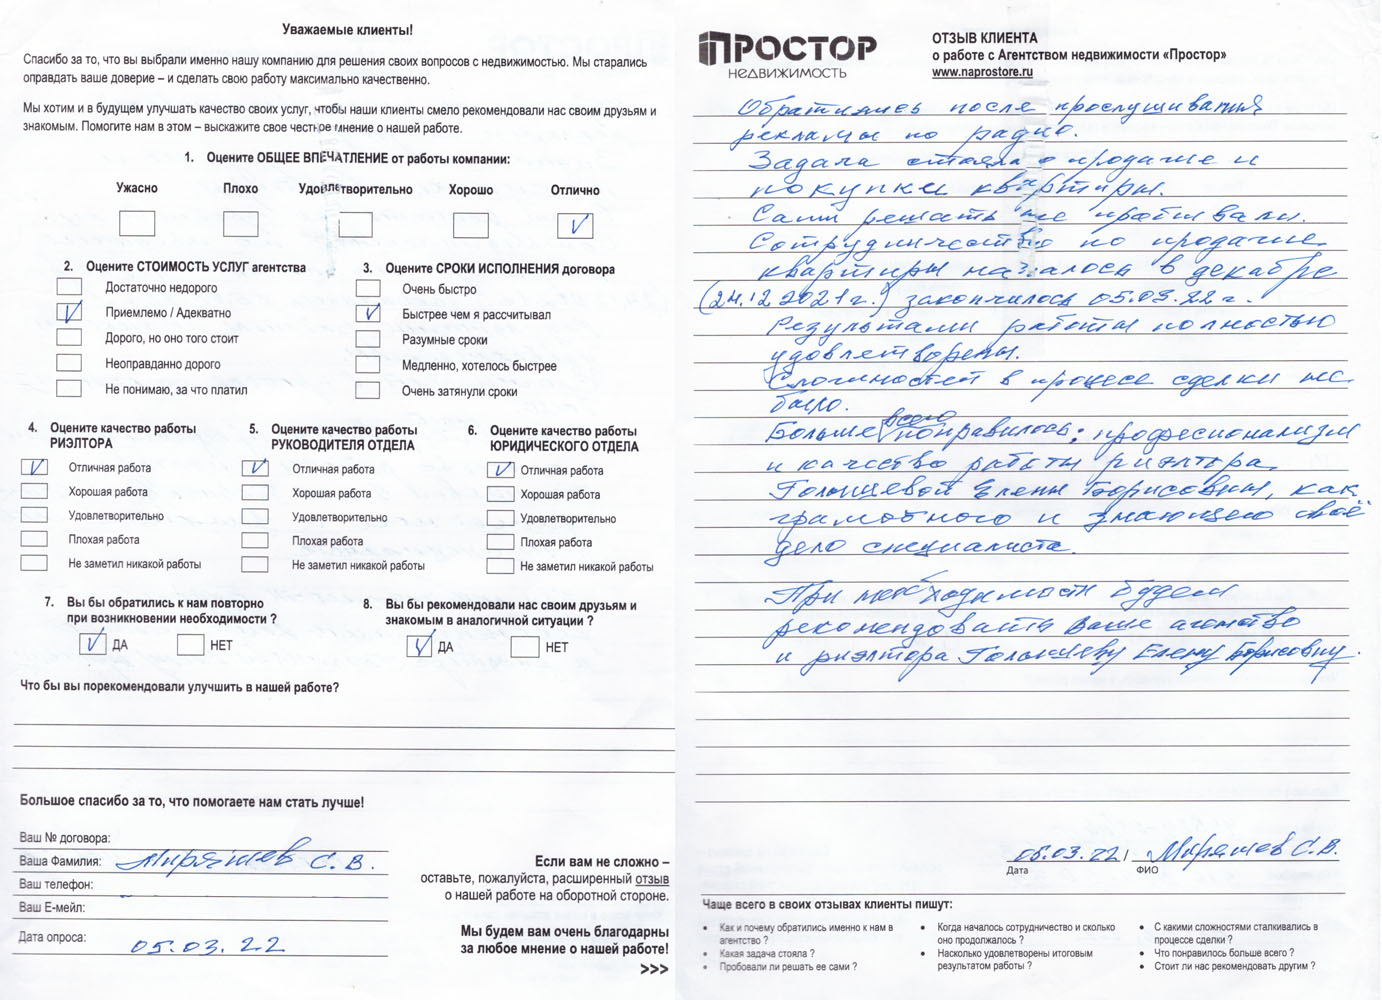 Уважаемые клиенты!
Спасибо за то, что вы выбрали именно нашу компанию для решения своих вопросов с недвижимостью. Мы старались
оправдать ваше доверие – и сделать свою работу максимально качественно.
Мы хотим и в будущем улучшать качество своих услуг, чтобы наши клиенты смело рекомендовали нас своим друзьям и
знакомым. Помогите нам в этом – выскажите свое честное мнение о нашей работе.
1. Оцените ОБЩЕЕ ВПЕЧАТЛЕНИЕ от работы компании:
Ужасно Плохо Удовлетворительно Хорошо Отлично
2. Оцените СТОИМОСТЬ УСЛУГ агентства
Достаточно недорого
Приемлемо / Адекватно
Дорого, но оно того стоит
Неоправданно дорого
Не понимаю, за что платил
3. Оцените СРОКИ ИСПОЛНЕНИЯ договора
Очень быстро
Быстрее чем я рассчитывал
Разумные сроки
Медленно, хотелось быстрее
Очень затянули сроки
4. Оцените качество работы
РИЭЛТОРА
Отличная работа
Хорошая работа
Удовлетворительно
Плохая работа
Не заметил никакой работы
5. Оцените качество работы
РУКОВОДИТЕЛЯ ОТДЕЛА
Отличная работа
Хорошая работа
Удовлетворительно
Плохая работа
Не заметил никакой работы
6. Оцените качество работы
ЮРИДИЧЕСКОГО ОТДЕЛА
Отличная работа
Хорошая работа
Удовлетворительно
Плохая работа
Не заметил никакой работы
7. Вы бы обратились к нам повторно
при возникновении необходимости ?
ДА НЕТ
8. Вы бы рекомендовали нас своим друзьям и
знакомым в аналогичной ситуации ?
ДА НЕТ
Что бы вы порекомендовали улучшить в нашей работе?
Большое спасибо за то, что помогаете нам стать лучше!
Ваш № договора:
Ваша Фамилия: Миряшев С.В.
Ваш телефон:
Ваш Е-мейл:
Дата опроса: 05.03.22
Если вам не сложно –
оставьте, пожалуйста, расширенный отзыв
о нашей работе на оборотной стороне.
Мы будем вам очень благодарны
за любое мнение о нашей работе!
>>>
ПРОСТОР
НЕДВИЖИМОСТЬ
ОТЗЫВ КЛИЕНТА
о работе с Агентством недвижимости «Простор»
www.naprostore.ru
Обратились после прослушивания
рекламы по радио.
Задача стояла о продаже и
покупке квартиры.
Сами решать не пробывали.
Сотрудничество по продаже
квартиры началось в декабре
(24.12.2021г.) закончилось 05.03.22г.
Результами работы полностью
удовлетворены.
Сложностей в процесе сделки не
было.
Больше всего понравилось: професионализм
и качество работы риэлтора
Елены Борисовны, как
грамотного и знающего своё
дело специалиста.
При необходимости будем
рекомендовать Ваше агенство
и риэлтора Елену Борисовну.
05.03.22 / Миряшев С.В.
Дата ФИО
Чаще всего в своих отзывах клиенты пишут:
• Как и почему обратились именно к нам в
агентство ?
• Какая задача стояла ?
• Пробовали ли решать ее сами ?
• Когда началось сотрудничество и сколько
оно продолжалось ?
• Насколько удовлетворены итоговым
результатом работы ?
• С какими сложностями сталкивались в
процессе сделки ?
• Что понравилось больше всего ?
• Стоит ли нас рекомендовать другим ?